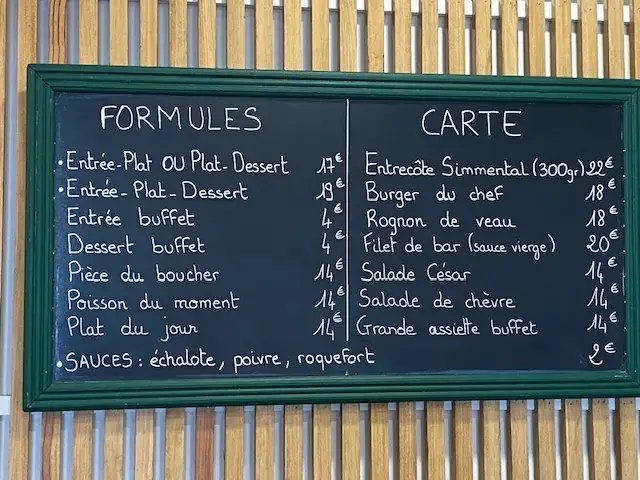 FORMULES
• Entrée-Plat OU Plat-Dessert 17€
• Entrée-Plat-Dessert 19€
Entrée buffet 4€
Dessert buffet 4€
Pièce du boucher 14€
Poisson du moment 14€
Plat du jour 14€
CARTE
Entrecôte Simmental (300gr) 22€
Burger du chef 18€
Rognon de veau 18€
Filet de bar (sauce vierge) 20€
Salade César 14€
Salade de chèvre 14€
Grande assiette buffet 14€
• SAUCES : échalote, poivre, roquefort 2€